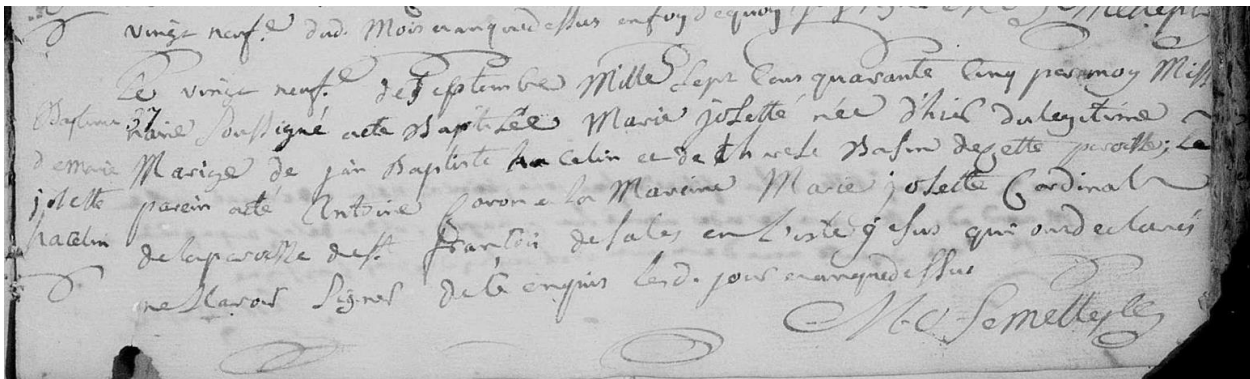 vingt neuf.e dud. Mois en anque dessus en foy de quoy
Le vingt neuf.e de Septembre Mille Sept Cens quarante Cinq par moy Miss
Batême
naire Soussigné acte Baptisée Marie josette née d'hier du legitime
de Marie
Marige de jan Baptiste hacelin et de therese Basin de cette paroisse; Le
josette
parein acté Antoine Caron e la Mareine Marie josette Cardinal
hacelin
de la paroisse de St. françois de sales en L'isle jesus qui ont declarés
ne scavoir Signer de ce enquis Lesd. jour en anque dessus